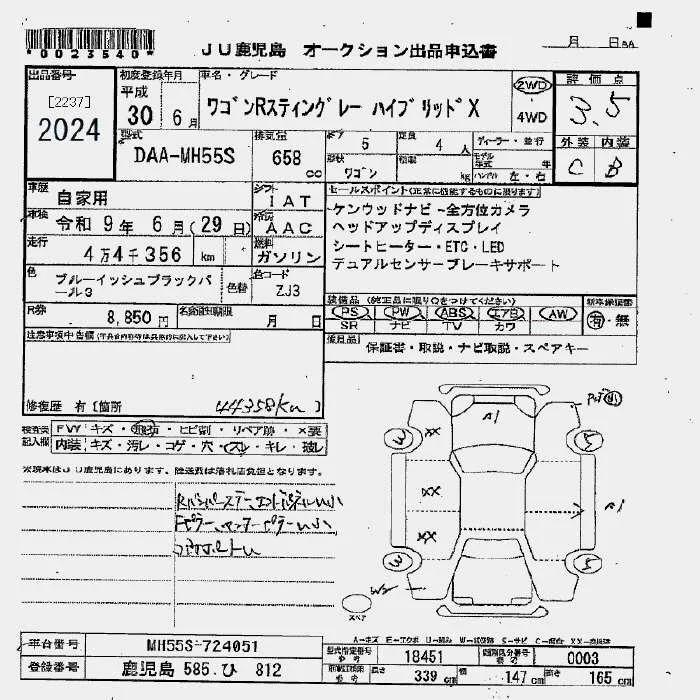 *0023540*
JU鹿児島 オークション出品申込書
月 日
出品番号
[2237]
2024
初度登録年月
平成
30 6月
車名・グレード
ワゴンRスティングレー ハイブリッドX
2WD
4WD
評価点
3.5
外装 内装
C B
型式
DAA-MH55S
排気量
658
cc
ドア
5
定員
4人
形状
ワゴン
積載
kg
ディーラー・並行
モデル年式 年
ハンドル 左・右
車歴
自家用
シフト
IAT
セールスポイント(正常に機能するものに限ります)
車検
令和 9年 6月(29日)
冷房
AAC
ケンウッドナビ-全方位カメラ
ヘッドアップディスプレイ
シートヒーター・ETC・LED
デュアルセンサーブレーキサポート
走行
4万4千356 km
燃料
ガソリン
色
ブルーイッシュブラックパール3
色替
色コード
ZJ3
装備品(純正品に限り○をつけてください)
PS PW ABS エアB AW
SR ナビ TV カワ
新車保証書
有・無
R券
8,850円
名変通知期限
月 日
注意事項申告欄
後日品
保証書・取説・ナビ取説・スペアキー
修復歴 有[箇所 ]
44358km
検査員記入欄
FW キズ・飛石・ヒビ割・リペア跡・×要
内装 キズ・汚レ・コゲ・穴・スレ・キレ・破レ
※現車はJU鹿児島にあります、陸送費は落札店負担となります。
A1
××
××
××
A1
W2
3
5
3
5
スペア
A=キズ E=エクボ U=凹み W=補修跡 S=サビ C=腐食 XX=交換済
車台番号
MH55S-724051
登録番号
鹿児島 585.ひ 812
型式指定番号
18451
類別区分番号
0003
長さ
339 cm
幅
147 cm
高さ
165 cm